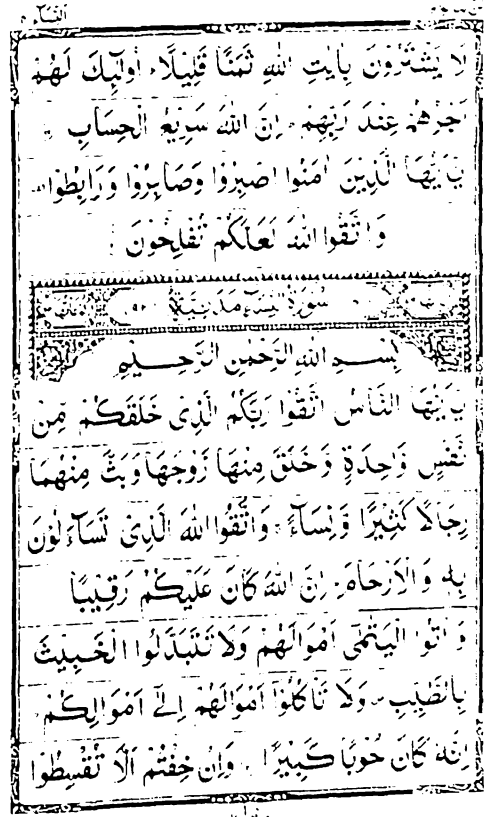 النسآء ٤
لَا يَشْتَرُوْنَ بِاٰيٰتِ اللّٰهِ ثَمَنًا قَلِيْلًا اُولٰٓئِكَ لَهُمْ
اَجْرُهُمْ عِنْدَ رَبِّهِمْ اِنَّ اللّٰهَ سَرِيْعُ الْحِسَابِ
يٰٓاَيُّهَا الَّذِيْنَ اٰمَنُوا اصْبِرُوْا وَصَابِرُوْا وَرَابِطُوْا
وَاتَّقُوا اللّٰهَ لَعَلَّكُمْ تُفْلِحُوْنَ
سُوْرَةُ النِّسَآءِ مَدَنِيَّةٌ
بِسْمِ اللّٰهِ الرَّحْمٰنِ الرَّحِيْمِ
يٰٓاَيُّهَا النَّاسُ اتَّقُوْا رَبَّكُمُ الَّذِيْ خَلَقَكُمْ مِّنْ
نَّفْسٍ وَّاحِدَةٍ وَّخَلَقَ مِنْهَا زَوْجَهَا وَبَثَّ مِنْهُمَا
رِجَالًا كَثِيْرًا وَّنِسَآءً وَاتَّقُوا اللّٰهَ الَّذِيْ تَسَآءَلُوْنَ
بِهٖ وَالْاَرْحَامَ اِنَّ اللّٰهَ كَانَ عَلَيْكُمْ رَقِيْبًا
وَاٰتُوا الْيَتٰمٰٓى اَمْوَالَهُمْ وَلَا تَتَبَدَّلُوا الْخَبِيْثَ
بِالطَّيِّبِ وَلَا تَاْكُلُوْٓا اَمْوَالَهُمْ اِلٰٓى اَمْوَالِكُمْ
اِنَّهٗ كَانَ حُوْبًا كَبِيْرًا وَاِنْ خِفْتُمْ اَلَّا تُقْسِطُوْا